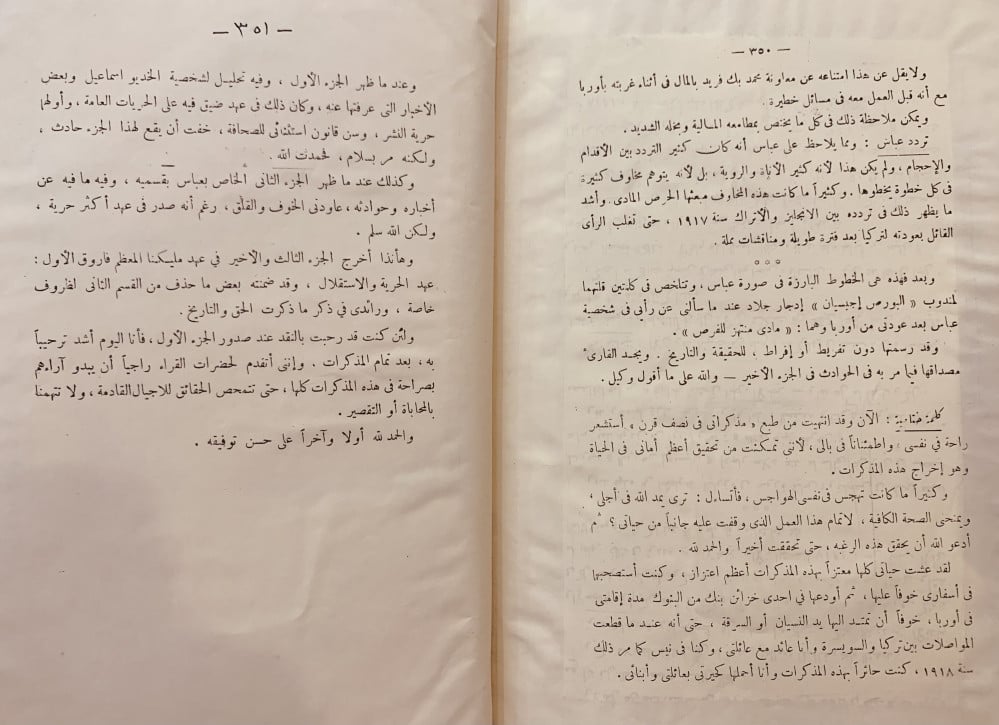 — ٣٥٠ —
ولايقل عن هذا امتناعه عن معاونة محمد بك فريد بالمال فى أثناء غربته بأوربا
مع أنه قبل العمل معه فى مسائل خطيرة .
ويمكن ملاحظة ذلك فى كل ما يختص بمطامعه المالية وبخله الشديد .
تردد عباس : ومما يلاحظ على عباس أنه كان كثير التردد بين الأقدام
والإحجام ، ولم يكن هذا لأنه كثير الأناة والروية ، بل لأنه يتوهم مخاوف كثيرة
فى كل خطوة يخطوها . وكثيراً ما كانت هذه المخاوف مبعثها الحرص المادى . وأشد
ما يظهر ذلك فى تردده بين الانجليز والأتراك سنة ١٩١٧ ، حتى تغلب الرأى
القائل بعودته لتركيا بعد فترة طويلة ومناقشات مملة .
° ° °
وبعد فهذه هى الخطوط البارزة فى صورة عباس ، وتتلخص فى كلمتين قلتهما
لمندوب « البورص إجبسيان » إدجار جلاد عند ما سألنى عن رأيى فى شخصية
عباس بعد عودتى من أوربا وهما : « مادى منتهز للفرص » .
وقد رسمتها دون تفريط أو إفراط ، للحقيقة والتاريخ . ويجد القارئ
مصداقها فيما مر به فى الحوادث فى الجزء الأخير — والله على ما أقول وكيل .
كلمة ختامية : الآن وقد انتهيت من طبع « مذكراتى فى نصف قرن » أستشعر
راحة فى نفسى ، واطمئناناً فى بالى ، لأننى تمكنت من تحقيق أعظم أمانى فى الحياة
وهو إخراج هذه المذكرات .
وكثيراً ما كانت تهجس فى نفسى الهواجس ، فأتساءل : ترى يمد الله فى أجلى ،
ويمنحنى الصحة الكافية ، لاتمام هذا العمل الذى وقفت عليه جانباً من حياتى ؟ ثم
أدعو الله أن يحقق هذه الرغبه ، حتى تحققت أخيراً والحمد لله .
لقد عشت حياتى كلها معتزاً بهذه المذكرات أعظم اعتزاز ، وكنت أستصحبها
فى أسفارى خوفاً عليها ، ثم أودعها فى احدى خزائن بنك من البنوك مدة إقامتى
فى أوربا ، خوفاً أن تمتد اليها يد النسيان أو السرقة ، حتى أنه عند ما قطعت
المواصلات بين تركيا والسويسرة وأنا عائد مع عائلتى ، وكنا فى نيس كما مر ذلك
سنة ١٩١٨ ، كنت حائراً بهذه المذكرات وأنا أحملها كحيرتى بعائلتى وأبنائى .
— ٣٥١ —
وعند ما ظهر الجزء الأول ، وفيه تحليل لشخصية الخديو اسماعيل وبعض
الأخبار التى عرفتها عنه ، وكان ذلك فى عهد ضيق فيه على الحريات العامة ، وأولها
حرية النشر ، وسن قانون استثنائى للصحافة ، خفت أن يقع لهذا الجزء حادث ،
ولكنه مر بسلام ، فحمدت الله .
وكذلك عند ما ظهر الجزء الثانى الخاص بعباس بقسميه ، وفيه ما فيه عن
أخباره وحوادثه ، عاودنى الخوف والقلق ، رغم أنه صدر فى عهد أكثر حرية ،
ولكن الله سلم .
وهأنذا أخرج الجزء الثالث والأخير فى عهد مليكنا المعظم فاروق الأول :
عهد الحرية والاستقلال ، وقد ضمنته بعض ما حذف من القسم الثانى لظروف
خاصة ، ورائدى فى ذكر ما ذكرت الحق والتاريخ .
ولئن كنت قد رحبت بالنقد عند صدور الجزء الأول ، فأنا اليوم أشد ترحيباً
به ، بعد تمام المذكرات . وإننى أتقدم لحضرات القراء راجياً أن يبدو آراءهم
بصراحة فى هذه المذكرات كلها ، حتى تتمحص الحقائق للاجيال القادمة ، ولا تتهمنا
بالمحاباة أو التقصير .
والحمد لله أولا وآخراً على حسن توفيقه .